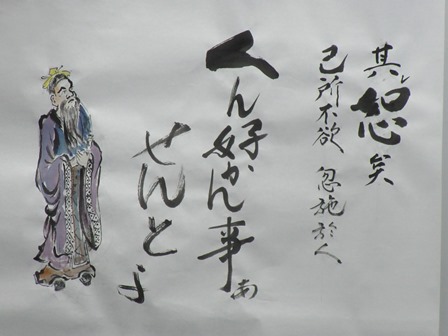 其レ恕矣
己所不欲 忽施於人
人ん好かん事
せんとよ
南